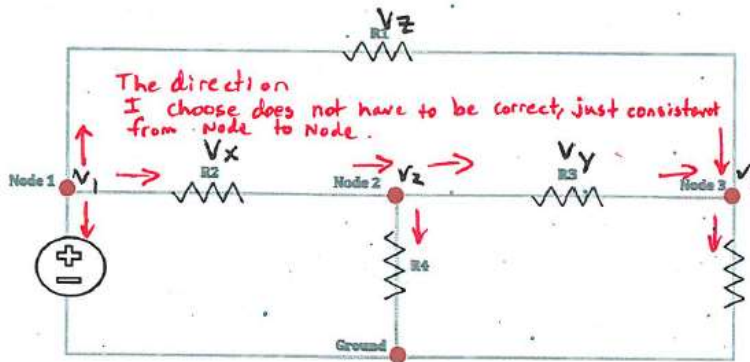 Vz
R1
The direction
I choose does not have to be correct, just consistent
from Node to Node.
Vx
Vy
Node 1
V1
R2
Node 2
V2
R3
Node 3
V
+
−
R4
Ground